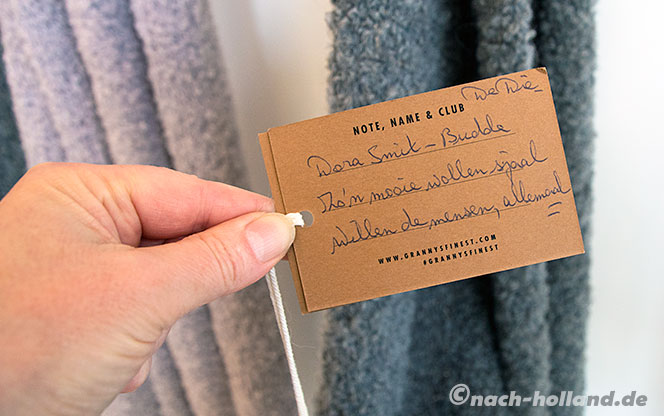 De Dië
NOTE, NAME & CLUB
Dora Smit - Budde
Zo'n mooie wollen sjaal
willen de mensen, allemaal
WWW.GRANNYSFINEST.COM
#GRANNYSFINEST
©nach-holland.de